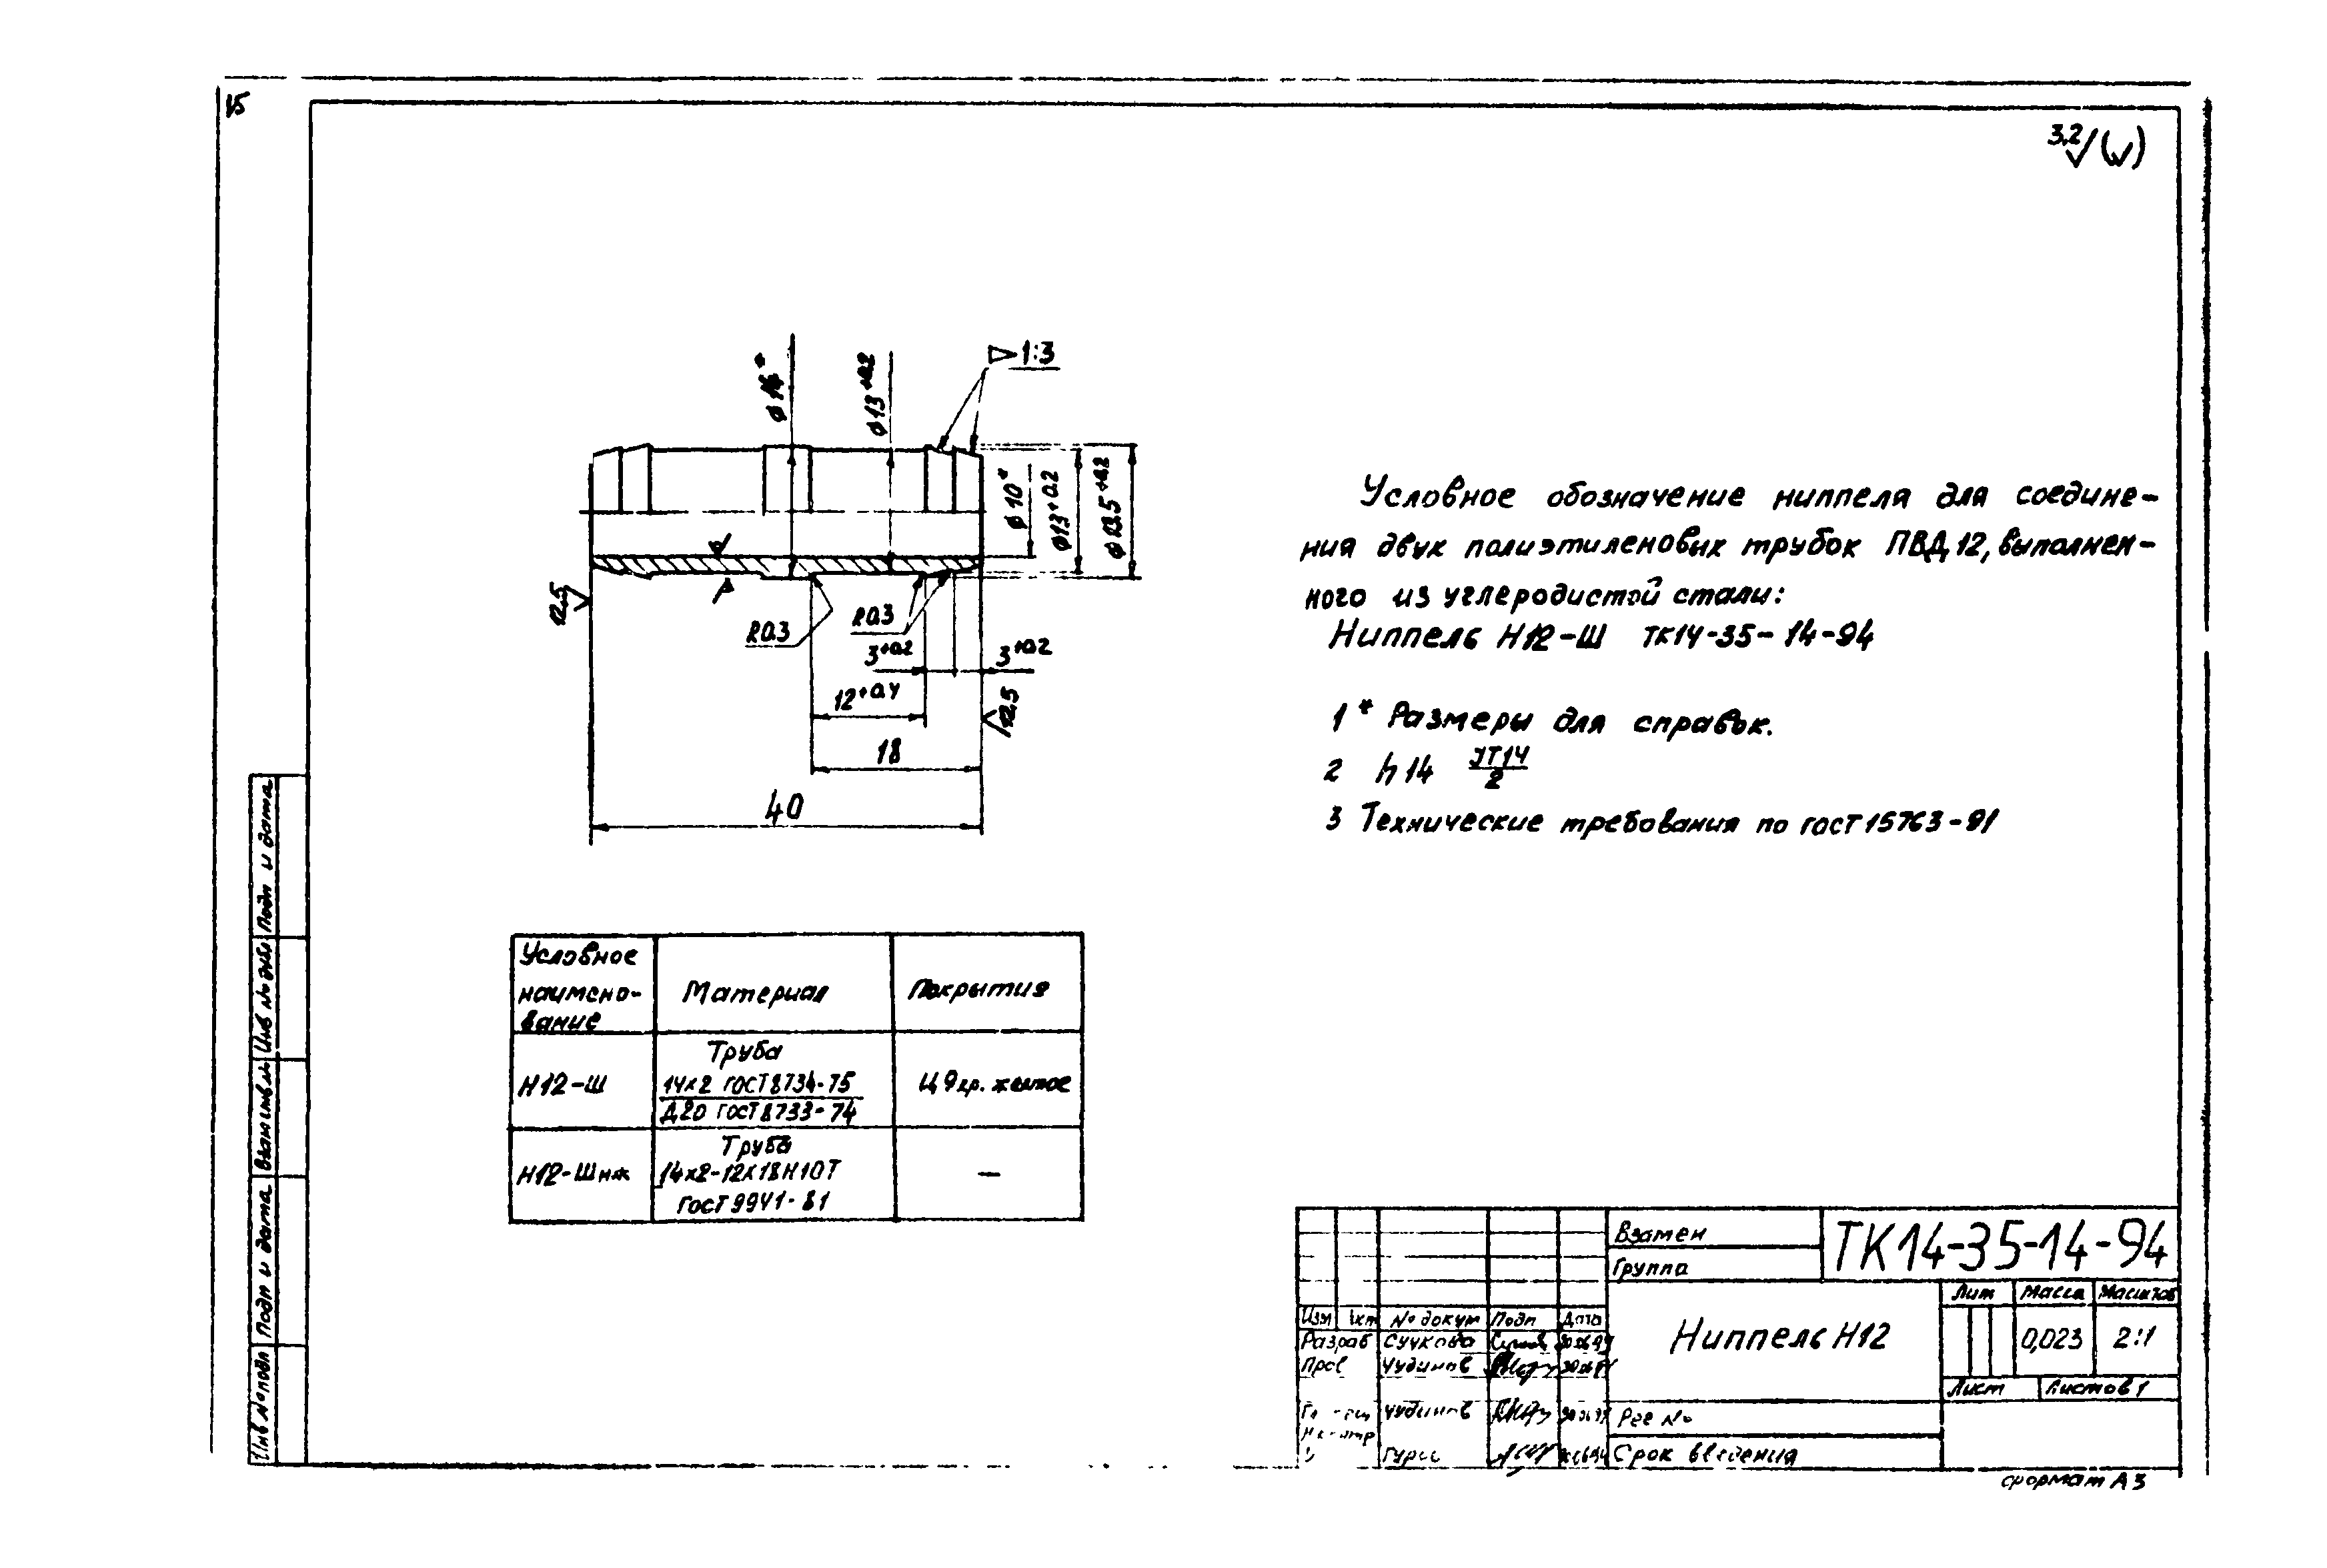 15
3,2 (√)
⌀14*
⌀13+0.2
▷1:3
⌀10*
⌀13+0.2
⌀13.5+0.2
12.5
R0.3
R0.3
3+0.2
3+0.2
12+0.4
12.5
18
40
Условное обозначение ниппеля для соедине-
ния двух полиэтиленовых трубок ПВД 12, выполнен-
ного из углеродистой стали:
Ниппель Н12-Ш ТК14-35-14-94
1 * Размеры для справок.
2 h14 JT14/2
3 Технические требования по ГОСТ 15763-91
Условное
наимено-
вание
Материал
Покрытия
Н12-Ш
Труба
14х2 ГОСТ 8734-75
Д20 ГОСТ 8733-74
Ц9хр. желтое
Н12-Шнж
Труба
14х2-12Х18Н10Т
ГОСТ 9941-81
—
Подп и дата
Инв № дубл
Взам инв №
Подп и дата
Инв № подл
Взамен
Группа
ТК14-35-14-94
Изм
№ докум
Подп
Дата
Разраб Сучкова
Пров Чудинов
Чудинов
Ниппель Н12
Лит Масса Масштаб
0,023 2:1
Лист Листов 1
Рег №
Срок введения
формат А3